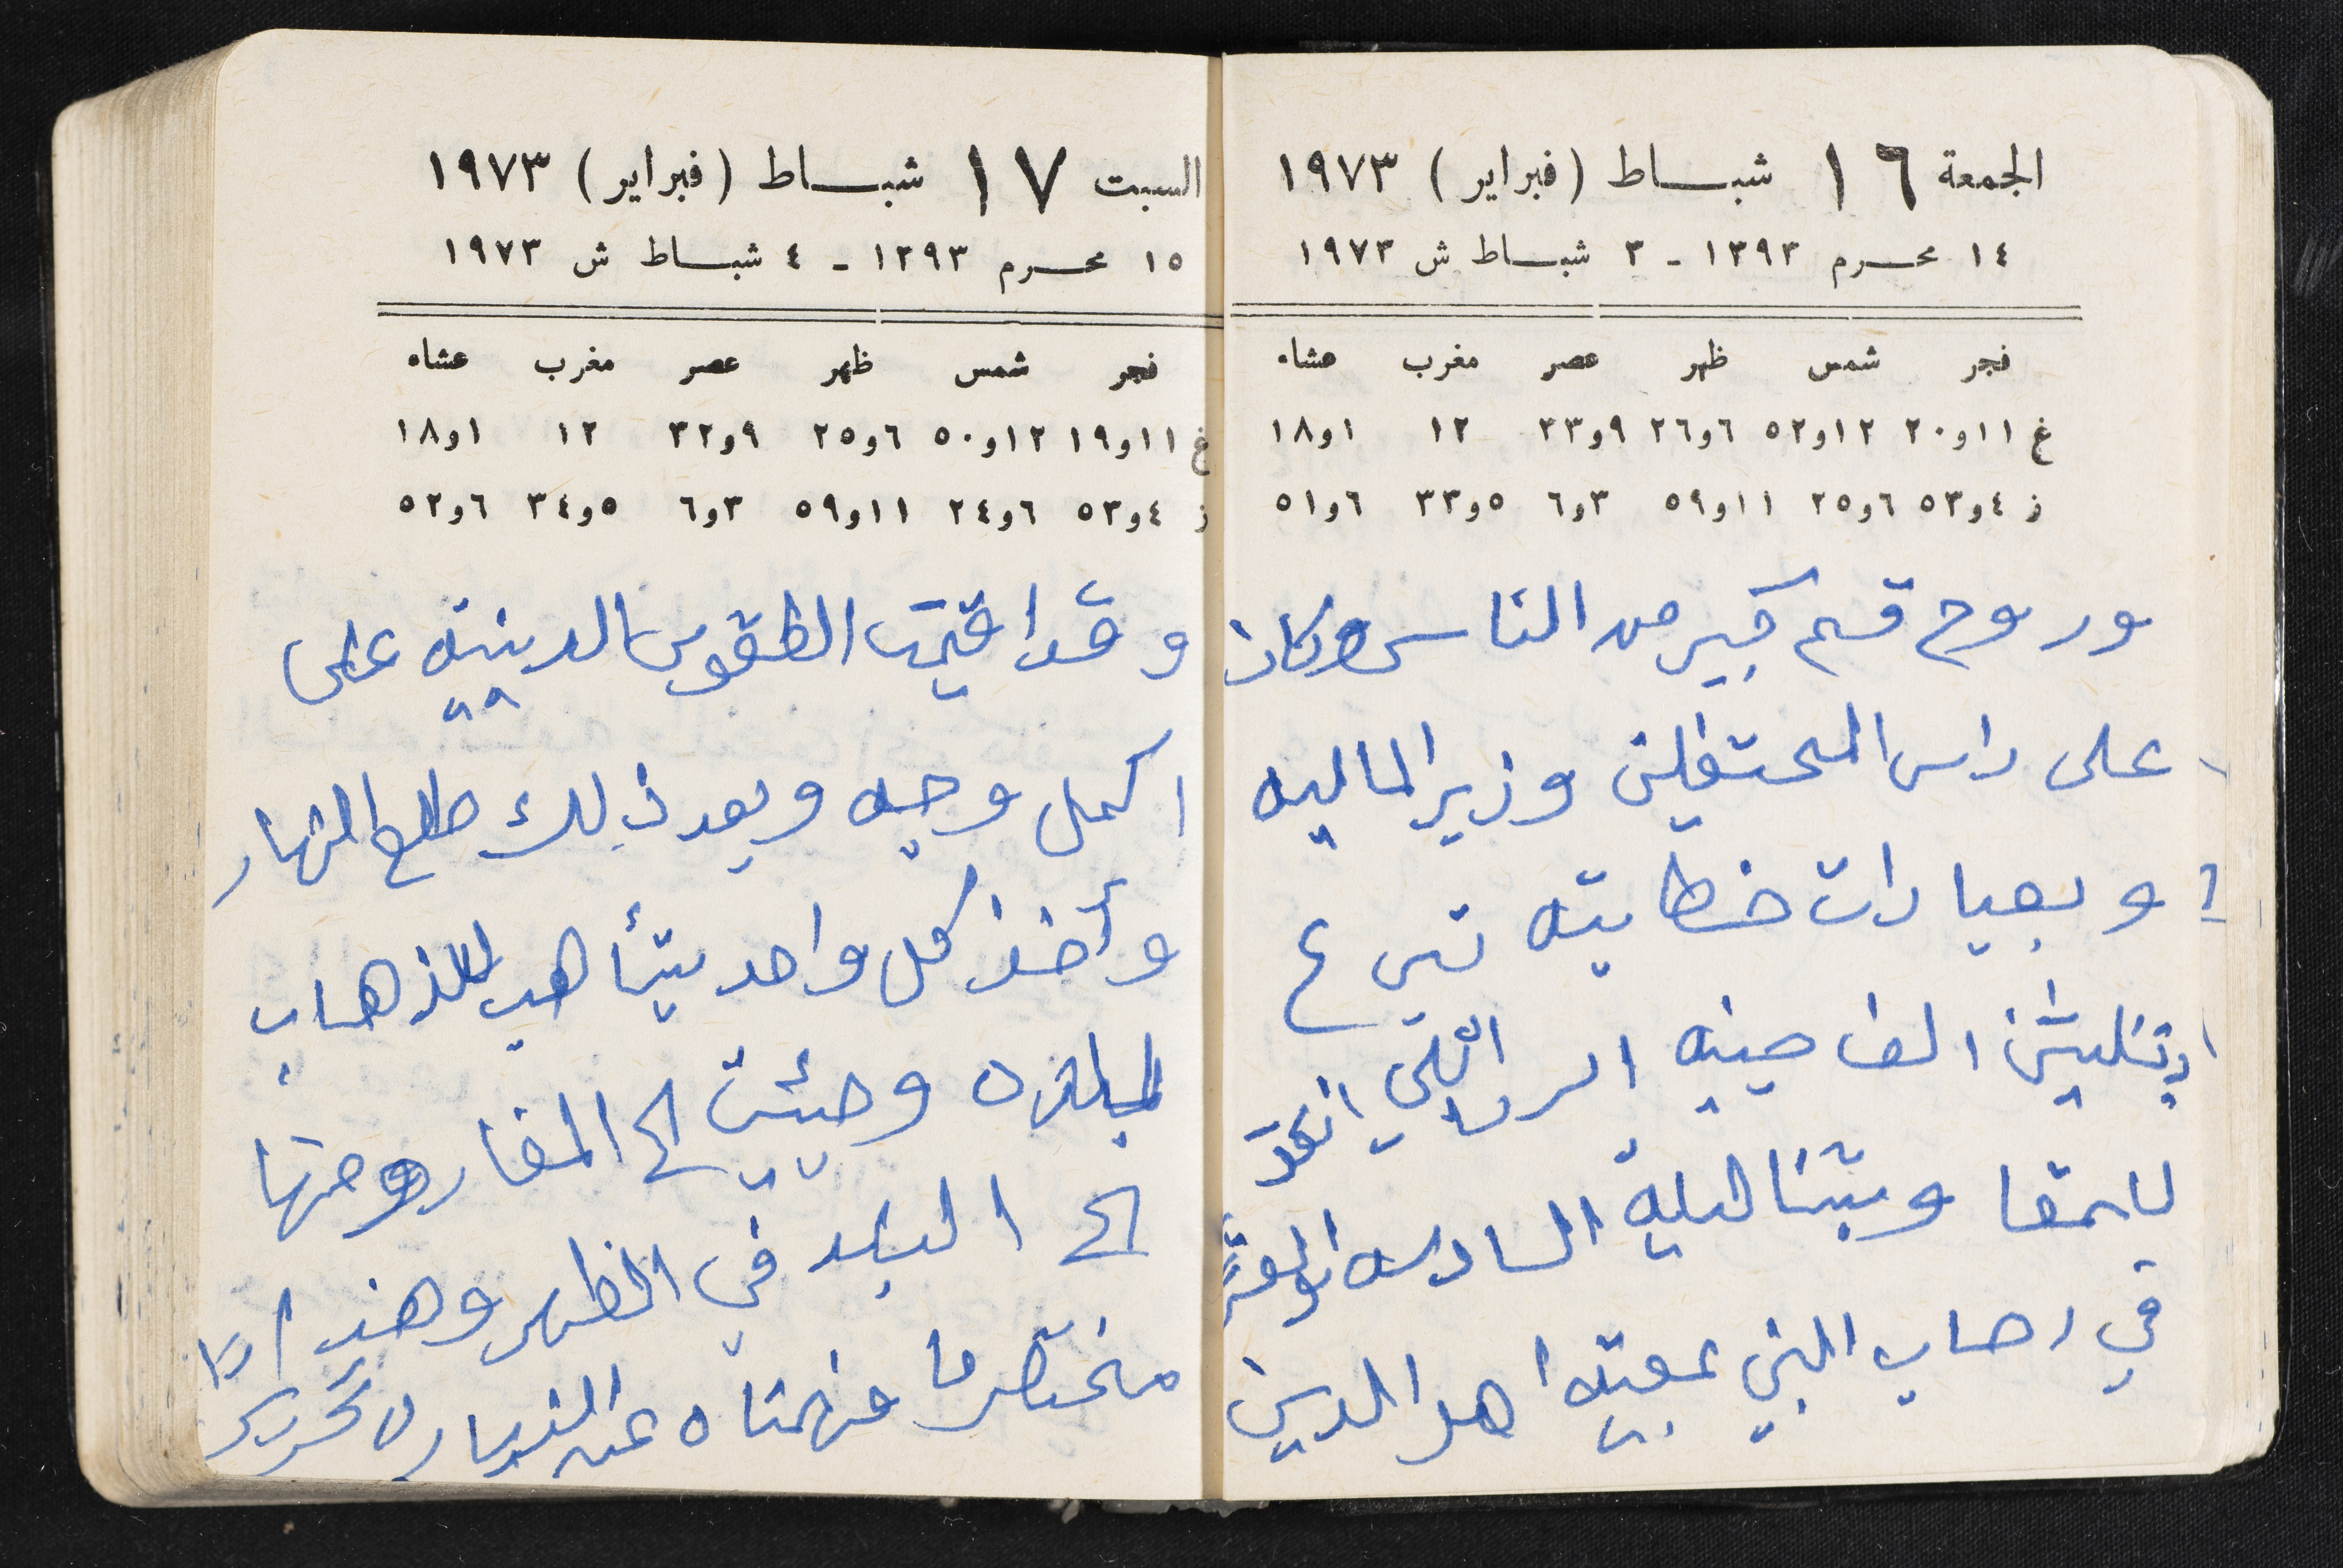 الجمعة ١٦ شبساط (فبراير) ١٩٧٣
١٤ محرم ١٣٩٣ - ٣ شباط ش ١٩٧٣
فجر شمس ظهر عصر مغرب عشاء
غ ١١و٢٠ ١٢و٥٢ ٦و٢٦ ٩و٣٣ ١٢ ١و١٨
ز ٤و٥٣ ٦و٢٥ ١١و٥٩ ٣و٦ ٥و٣٣ ٦و٥١
وروح قسم كبير من الناس وكان
على راس المحتفلين وزير الماليه
وبعبارات خطابيه تبرع
بثليثين الف جنيه الى اللي
للمقا وبتنا ليله السادسه
في رحاب النبي بمعيه اهل الدين
السبت ١٧ شباط (فبراير) ١٩٧٣
١٥ محرم ١٣٩٣ - ٤ شباط ش ١٩٧٣
فجر شمس ظهر عصر مغرب عشاء
غ ١١و١٩ ١٢و٥٠ ٦و٢٥ ٩و٣٢ ١٢ ١و١٨
ز ٤و٥٣ ٦و٢٤ ١١و٥٩ ٣و٦ ٥و٣٤ ٦و٥٢
وقد اقيمت الطقوس الدينيه على
اكمل وجيه وبعد ذلك طلع النهار
وأخذ كل واحد يتأهب للذهاب
لبلده وجيئت الى المغار ومنها
الى البلد في الظهر وهذا
مختصر ما فهمناه عن الزياره